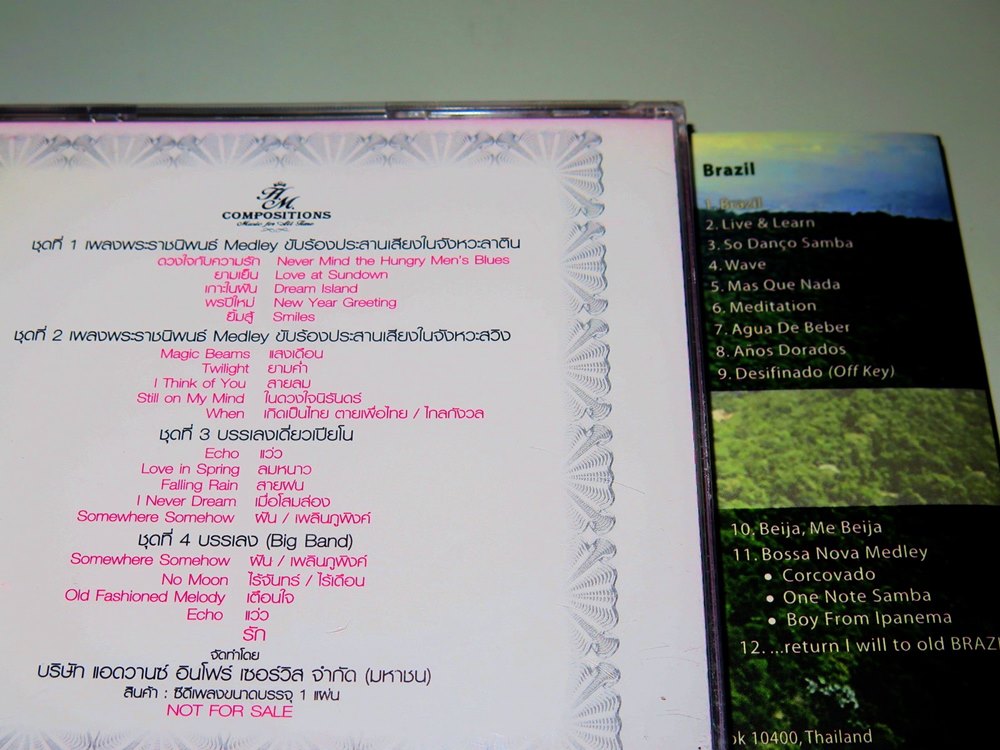 H.M.
COMPOSITIONS
Music for All Time
ชุดที่ 1 เพลงพระราชนิพนธ์ Medley ขับร้องประสานเสียงในจังหวะลาติน
ดวงใจกับความรัก Never Mind the Hungry Men's Blues
ยามเย็น Love at Sundown
เกาะในฝัน Dream Island
พรปีใหม่ New Year Greeting
ยิ้มสู้ Smiles
ชุดที่ 2 เพลงพระราชนิพนธ์ Medley ขับร้องประสานเสียงในจังหวะสวิง
Magic Beams แสงเดือน
Twilight ยามค่ำ
I Think of You สายลม
Still on My Mind ในดวงใจนิรันดร์
When เกิดเป็นไทย ตายเพื่อไทย / ไกลกังวล
ชุดที่ 3 บรรเลงเดี่ยวเปียโน
Echo แว่ว
Love in Spring ลมหนาว
Falling Rain สายฝน
I Never Dream เมื่อโสมส่อง
Somewhere Somehow ฝัน / เพลินภูพิงค์
ชุดที่ 4 บรรเลง (Big Band)
Somewhere Somehow ฝัน / เพลินภูพิงค์
No Moon ไร้จันทร์ / ไร้เดือน
Old Fashioned Melody เตือนใจ
Echo แว่ว
รัก
จัดทำโดย
บริษัท แอดวานซ์ อินโฟร์ เซอร์วิส จำกัด (มหาชน)
สินค้า : ซีดีเพลงขนาดบรรจุ 1 แผ่น
NOT FOR SALE
Brazil
1. Brazil
2. Live & Learn
3. So Danço Samba
4. Wave
5. Mas Que Nada
6. Meditation
7. Agua De Beber
8. Años Dorados
9. Desifinado (Off Key)
10. Beija, Me Beija
11. Bossa Nova Medley
• Corcovado
• One Note Samba
• Boy From Ipanema
12. ...return I will to old BRAZI
ok 10400, Thailand